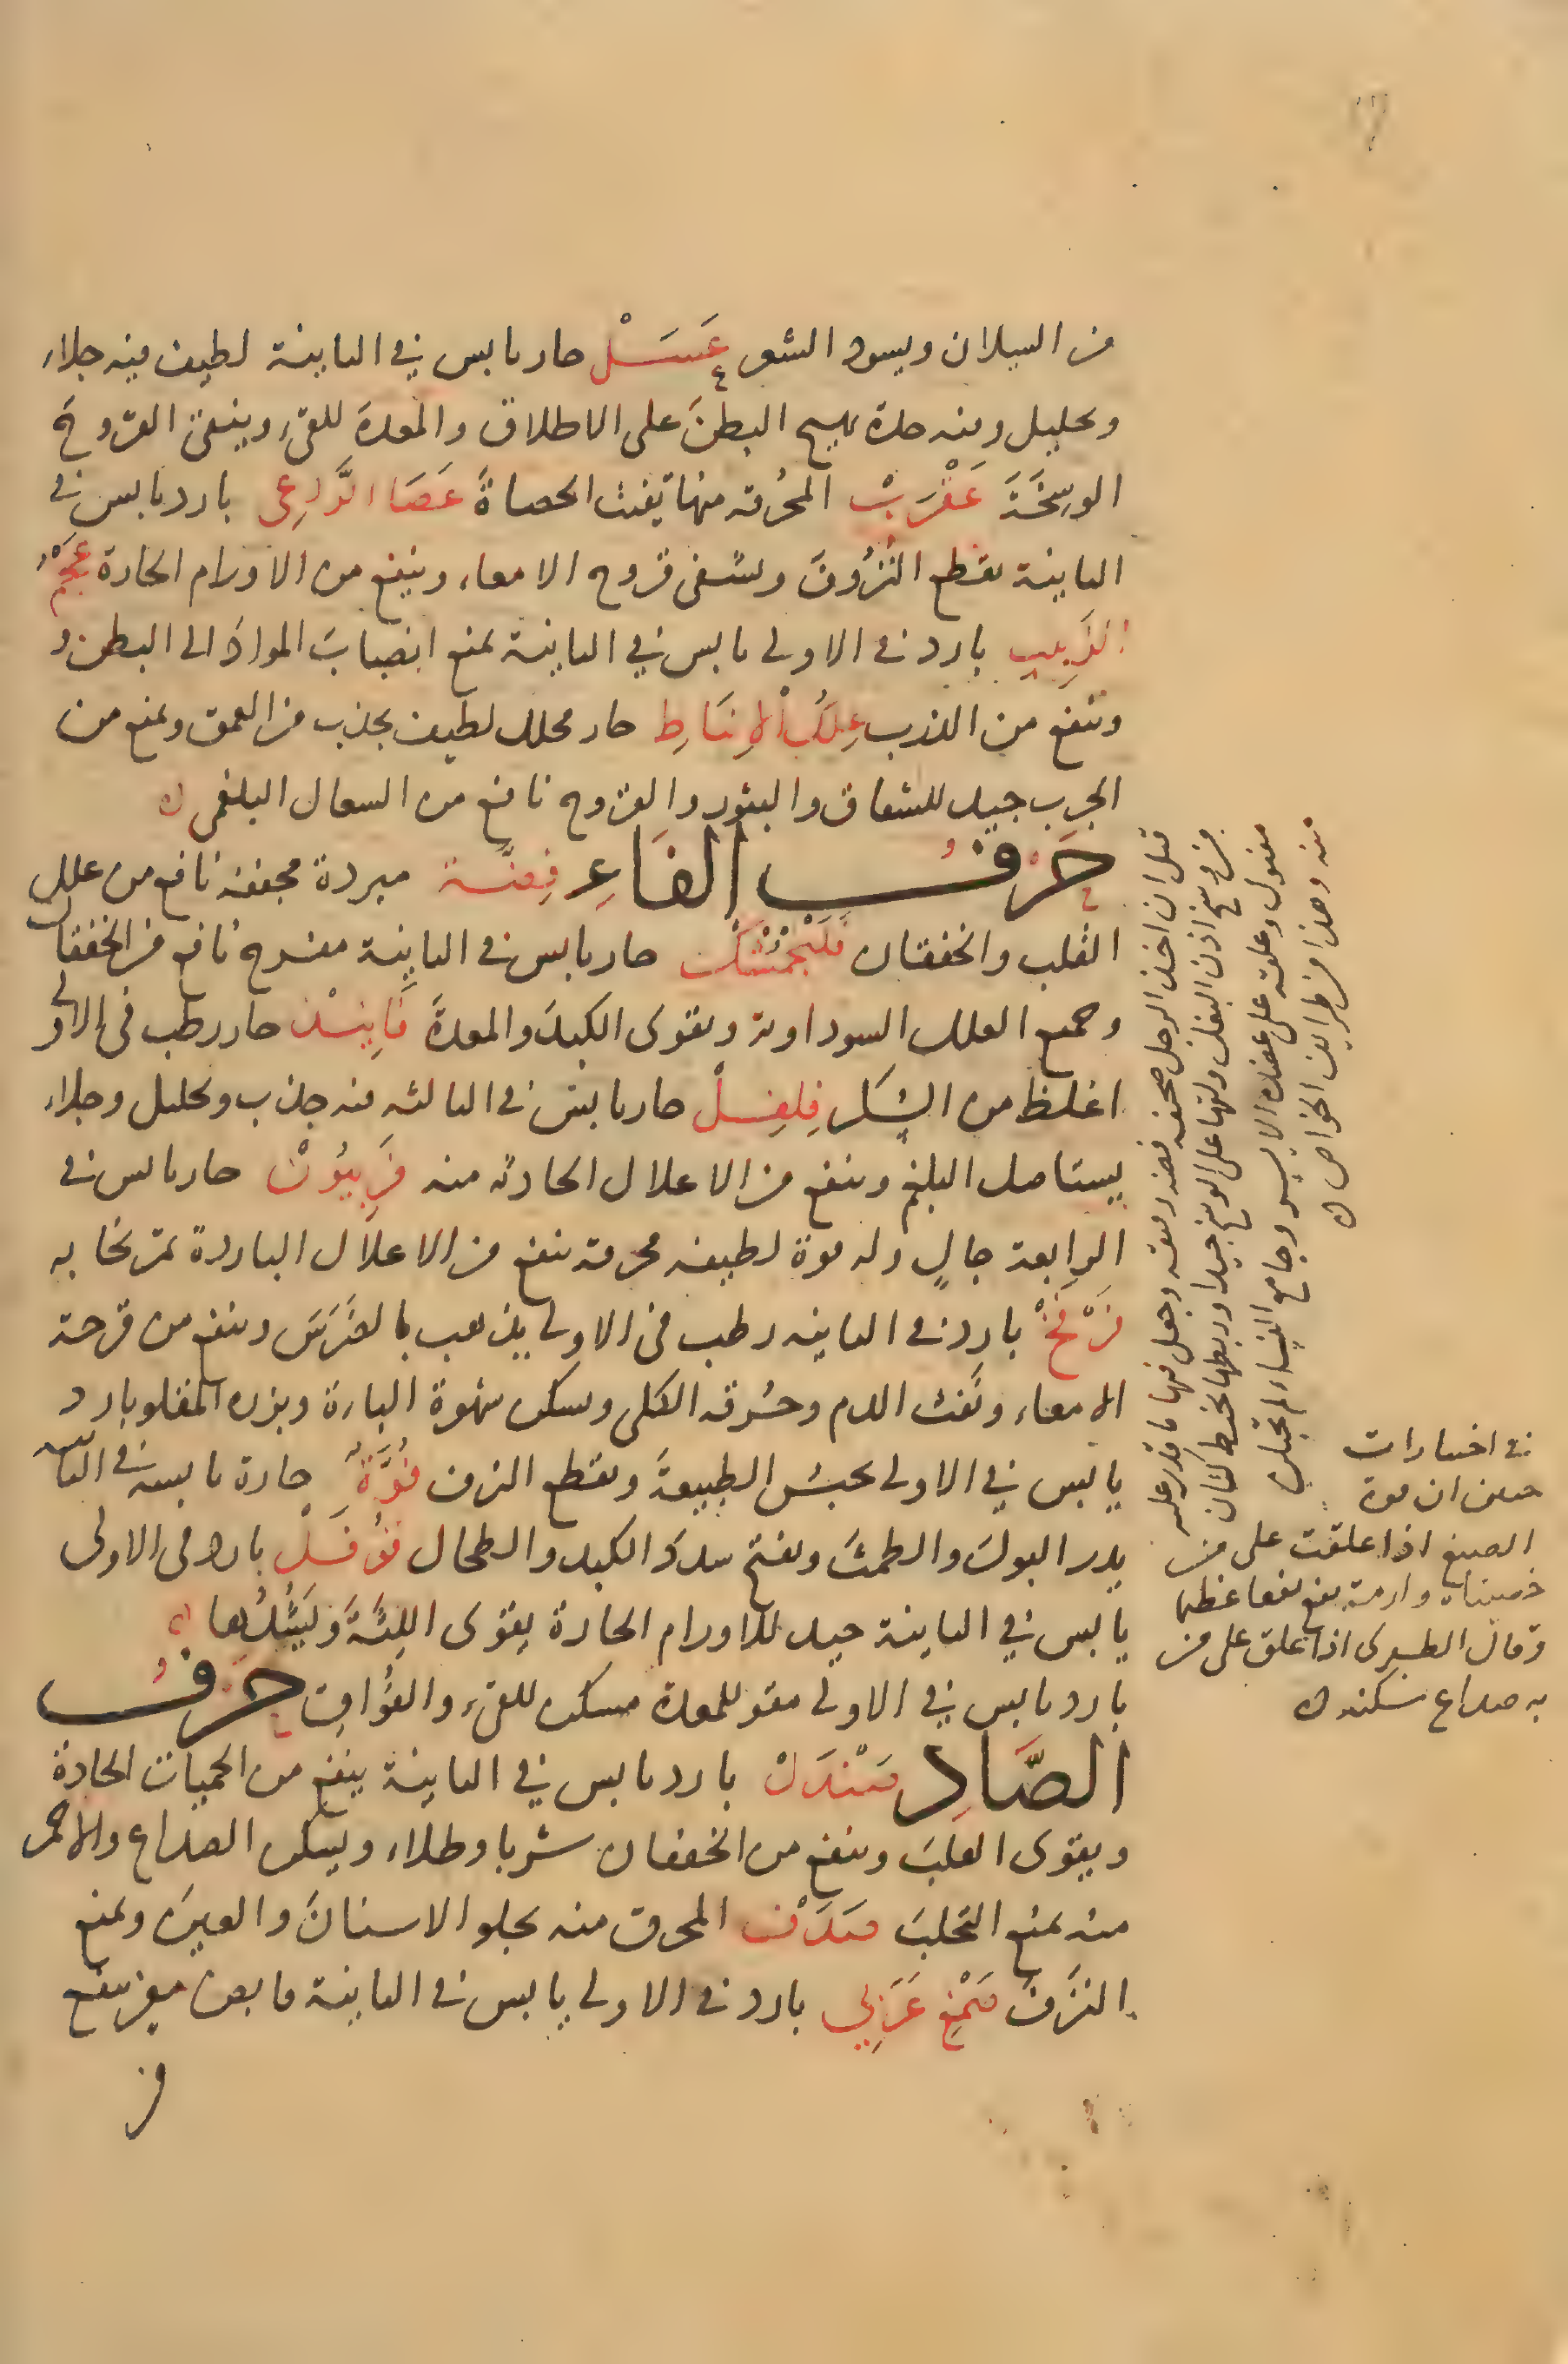 من السيلان ويسود الشعر عَسَلْ حار يابس في الثانية لطيف فيه جلاء
وتحليل وفيه حدة يهيج البطنَ على الاطلاق والمعدة للقيء وينقي القروح
الوسِخَةَ عَقْرَبْ المحُرقه منها تفتت الحصاةَ عَصَا الرَّاعِى بارد يابس في
الثانية يقطع النُزُوفَ ويشفى قروح الامعاء وينفع من الاورام الحارة عَجَمْ
الزَبِيبِ بارد في الاولى يابس في الثانية يمنع انصبابَ الموادّ الى البطن و
وينفع من الذرب عِلكُ الانبَاطِ حار محلل لطيف يجذب من العمق ويمنع من
الجرب جيد للشقاق والبثور والقروح نافع من السعال البلغمى
حَرْفُ الفَاءِ فِضّة مبردة مجففه نافع من علل
القلب والخفقان فَلَنْجَمُشْك حار يابس في الثانِية مفرح نافع من الخفقان
وجميع العلل السوداوية ويقوى الكبدَ والمعدةَ فَانِيذْ حار رطب فى الاولى
اغلظ من السُكر فِلفِلْ حار يابس في الثالثه فيه جذب وتحليل وجلاء
يستاصل البلغم وينفع من الاعلال الحادثه منه فَرِبيُونْ حار يابس في
الرابعة جالٍ وله قوة لطيفه محرقة ينفع من الاعلال الباردة تمريخا به
فَرْفَخْ بارد في الثانيه رطب في الاولى يذهب بالضَرَسَ وينفع من قرحة
الامعاء ونَفث الدم وحُرقه الكلى ويسكن شهوة الباءة وبزره المقلو بارد
يابس في الاولى يحبسُ الطبيعةَ ويقطع النزف فُوَّة حارة يابسه في الثانيه
يدر البولَ والطمثَ ويفتح سددَ الكبد والطحال فَوفَلْ بارد فى الاولى
يابس في الثانية جيد للاورام الحارة يقوى اللِثَةَ وَيَشُدُها
بارد يابس في الاولى مقو للمعدة مسكن للقيء والفُواق حَرْفُ
الصَّادِ صَنْدَلْ بارد يابس في الثانِية ينفع من الحميات الحادة
ويقوى القلبَ وينفع من الخفقان شربا وطلاء ويسكن الصداع والاحمر
منه يمنع التحلبَ صَدَفْ المحرق منه يجلو الاسنانَ والعينَ ويمنع
النزَفَ صَمْغ عَرَبِي بارد في الاولى يابس في الثانية قابض مغر ينفع
من
قيل ان اخذ الرجل صحفه فضه وجعل فيها ما قدر عليه
من وسخ اذن البغل ولفها على الوسخ جيدا وربطها بخيط كتان
مفتول وعلقه على عضده الايسر وجامع النساء لم تحبلن
منه وهذا من ظرايف الخواص
في اختيارات
حنين ان فوة
الصبغ اذا علقت على من
خصيتاه وارمة ينفع نفعا عظيما
وقال الطبرى اذا علق على من
به صداع سكنه